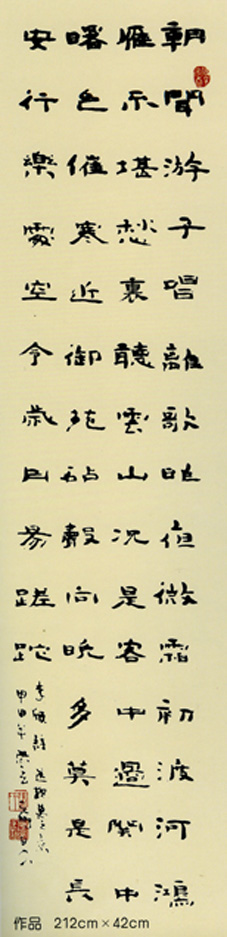 朝聞游子唱離歌昨夜微霜初渡河鴻
雁不堪愁裏聽雲山況是客中過關中
曙色催寒近御苑砧聲向晚多莫是長
安行樂處空令歲月易蹉跎
李頎詩送魏萬之京
甲申年
作品 212cm×42cm